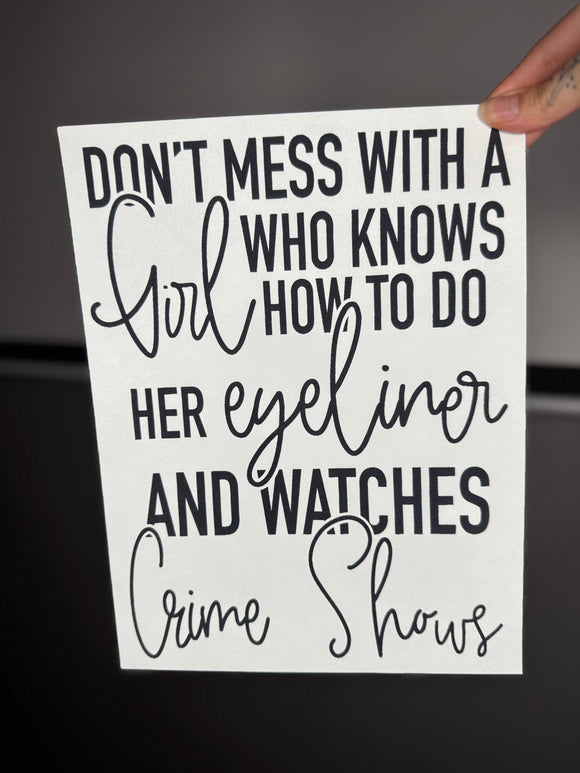 DON'T MESS WITH A
Girl WHO KNOWS
HOW TO DO
HER eyeliner
AND WATCHES
Crime Shows